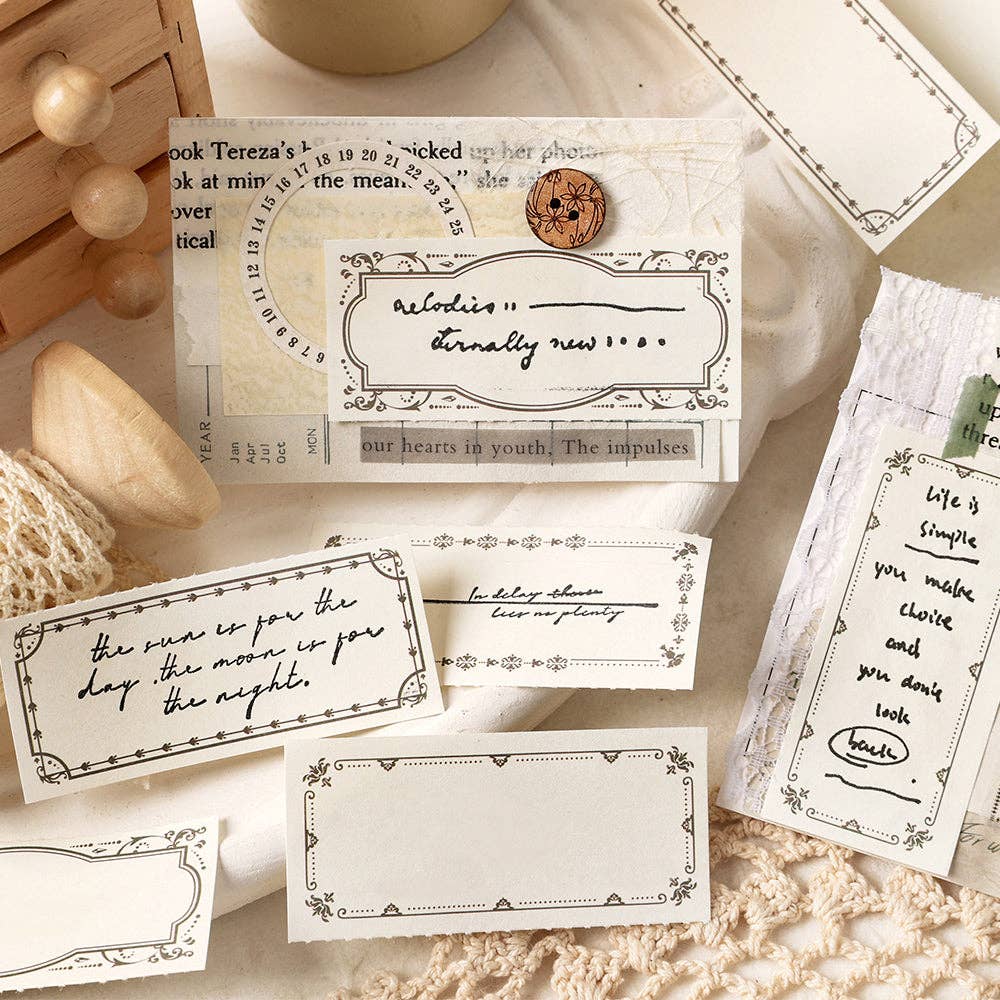 ook Tereza's picked up her photo
ok at the mean " she
over
tical
6 7 8 9 10 11 12 13 14 15 16 17 18 19 20 21 22 23 24 25
melodies ..
eternally new ....
YEAR
Jan
Apr
Jul
Oct
MON
our hearts in youth, The impulses
In delay there
lies no plenty
the sun is for the
day . the moon is for
the night.
up
three
Life is
simple
you make
choice
and
you don't
look
back
.